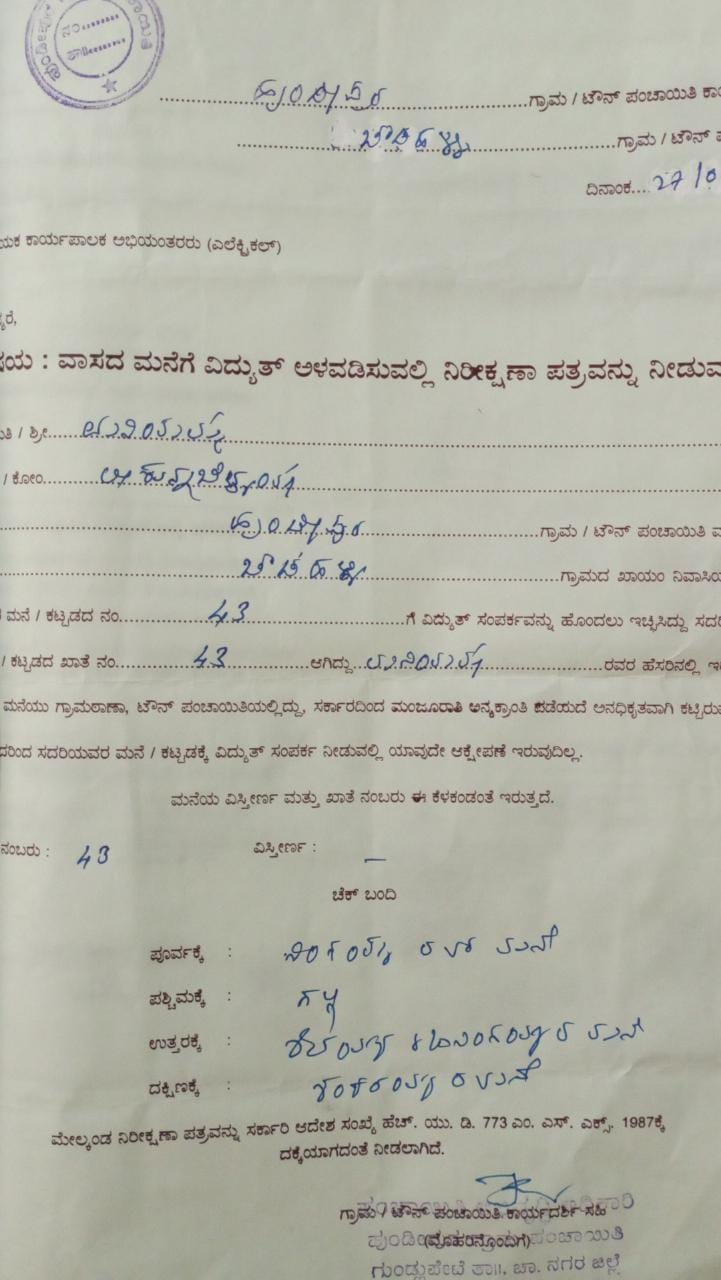 ನಂ........
ತಾ||........
ಗ್ರಾಮ / ಟೌನ್ ಪಂಚಾಯಿತಿ ಕಾರ್ಯ
ಗ್ರಾಮ / ಟೌನ್
ದಿನಾಂಕ.... 27/0
ಯಕ ಕಾರ್ಯಪಾಲಕ ಅಭಿಯಂತರರು (ಎಲೆಕ್ಟ್ರಿಕಲ್)
ರೆ,
ಷಯ : ವಾಸದ ಮನೆಗೆ ವಿದ್ಯುತ್ ಅಳವಡಿಸುವಲ್ಲಿ ನಿರೀಕ್ಷಣಾ ಪತ್ರವನ್ನು ನೀಡುವ
ತಿ / ಶ್ರೀ..... ಮುನಿಯಯ್ಯ
/ ಕೋಂ.....
ಗ್ರಾಮ / ಟೌನ್ ಪಂಚಾಯಿತಿ ವ
ಗ್ರಾಮದ ಖಾಯಂ ನಿವಾಸಿಯ
ಮನೆ / ಕಟ್ಟಡದ ನಂ. 43 ಗೆ ವಿದ್ಯುತ್ ಸಂಪರ್ಕವನ್ನು ಹೊಂದಲು ಇಚ್ಛಿಸಿದ್ದು ಸದರಿ
/ ಕಟ್ಟಡದ ಖಾತೆ ನಂ. 43 ಆಗಿದ್ದು ರವರ ಹೆಸರಿನಲ್ಲಿ ಇ
ಮನೆಯು ಗ್ರಾಮಠಾಣಾ, ಟೌನ್ ಪಂಚಾಯಿತಿಯಲ್ಲಿದ್ದು, ಸರ್ಕಾರದಿಂದ ಮಂಜೂರಾತಿ ಅನ್ಯಕ್ರಾಂತಿ ಪಡೆಯದೆ ಅನಧಿಕೃತವಾಗಿ ಕಟ್ಟಿರು
ದರಿಂದ ಸದರಿಯವರ ಮನೆ / ಕಟ್ಟಡಕ್ಕೆ ವಿದ್ಯುತ್ ಸಂಪರ್ಕ ನೀಡುವಲ್ಲಿ ಯಾವುದೇ ಆಕ್ಷೇಪಣೆ ಇರುವುದಿಲ್ಲ.
ಮನೆಯ ವಿಸ್ತೀರ್ಣ ಮತ್ತು ಖಾತೆ ನಂಬರು ಈ ಕೆಳಕಂಡಂತೆ ಇರುತ್ತದೆ.
ನಂಬರು : 43 ವಿಸ್ತೀರ್ಣ : —
ಚೆಕ್ ಬಂದಿ
ಪೂರ್ವಕ್ಕೆ : ನಿಂಗಯ್ಯ ರವರ ಮನೆ
ಪಶ್ಚಿಮಕ್ಕೆ : ಗಲ್ಲಿ
ಉತ್ತರಕ್ಕೆ : ಮನೆ
ದಕ್ಷಿಣಕ್ಕೆ : ಶಂಕರಯ್ಯ ರ ಮನೆ
ಮೇಲ್ಕಂಡ ನಿರೀಕ್ಷಣಾ ಪತ್ರವನ್ನು ಸರ್ಕಾರಿ ಆದೇಶ ಸಂಖ್ಯೆ ಹೆಚ್. ಯು. ಡಿ. 773 ಎಂ. ಎಸ್. ಎಕ್ಸ್. 1987ಕ್ಕೆ
ದಕ್ಕೆಯಾಗದಂತೆ ನೀಡಲಾಗಿದೆ.
ಗ್ರಾಮ / ಟೌನ್ ಪಂಚಾಯಿತಿ ಕಾರ್ಯದರ್ಶಿ ಸಹಿ
(ಮೊಹರಿನೊಂದಿಗೆ) ಪಂಚಾಯಿತಿ
ಗುಂಡ್ಲುಪೇಟೆ ತಾ||, ಚಾ. ನಗರ ಜಿಲ್ಲೆ